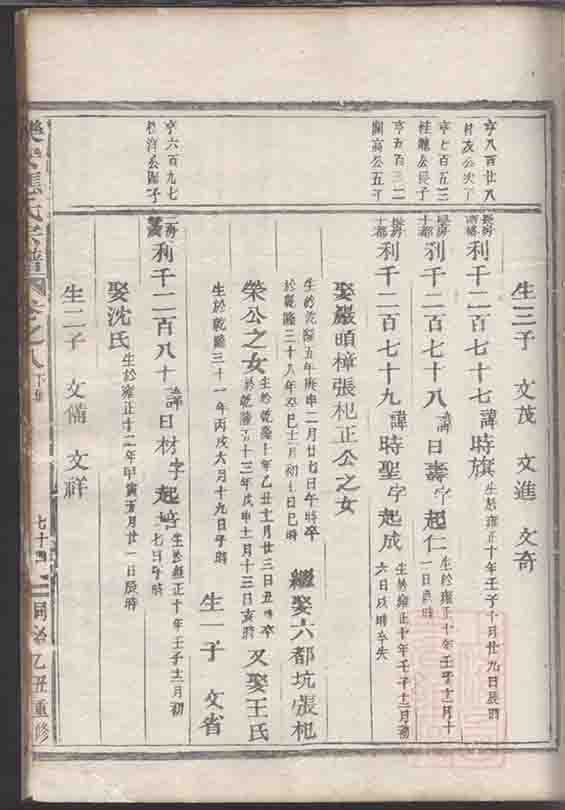 生三子 文茂 文進 文奇
亨八百廿八
利千二百七十七 諱時旗 生於雍正十年壬子十月廿九日辰時
亨七百五三
桂聽公長子
十都 利千二百七十八 諱日壽 字起仁 生於雍正十年壬子十二月十一日辰時
亨五百三二
蘭高公五子
十都 利千二百七十九 諱時聖 字起成 生於雍正十年壬子十二月初六日戌時卒失
娶嚴頭樟張杞正公之女
生於乾隆五年庚申二月廿七日午時卒
於乾隆三十八年癸巳十二月初十日巳時 繼娶六都坑張杞
榮公之女 生於乾隆十年乙丑十二月廿三日丑時卒於乾隆五十三年戊申十一月十三日亥時 又娶王氏
生於乾隆三十一年丙戌六月十九日子時 生一子 文省
亨六百九七
利千二百八十 諱日材 字起培 生於雍正十年壬子十二月初七日子時
娶沈氏 生於雍正十二年甲寅五月廿一日辰時
生二子 文備 文祥
樂安張氏宗譜 卷之八 下集 七十四 同治乙丑重修